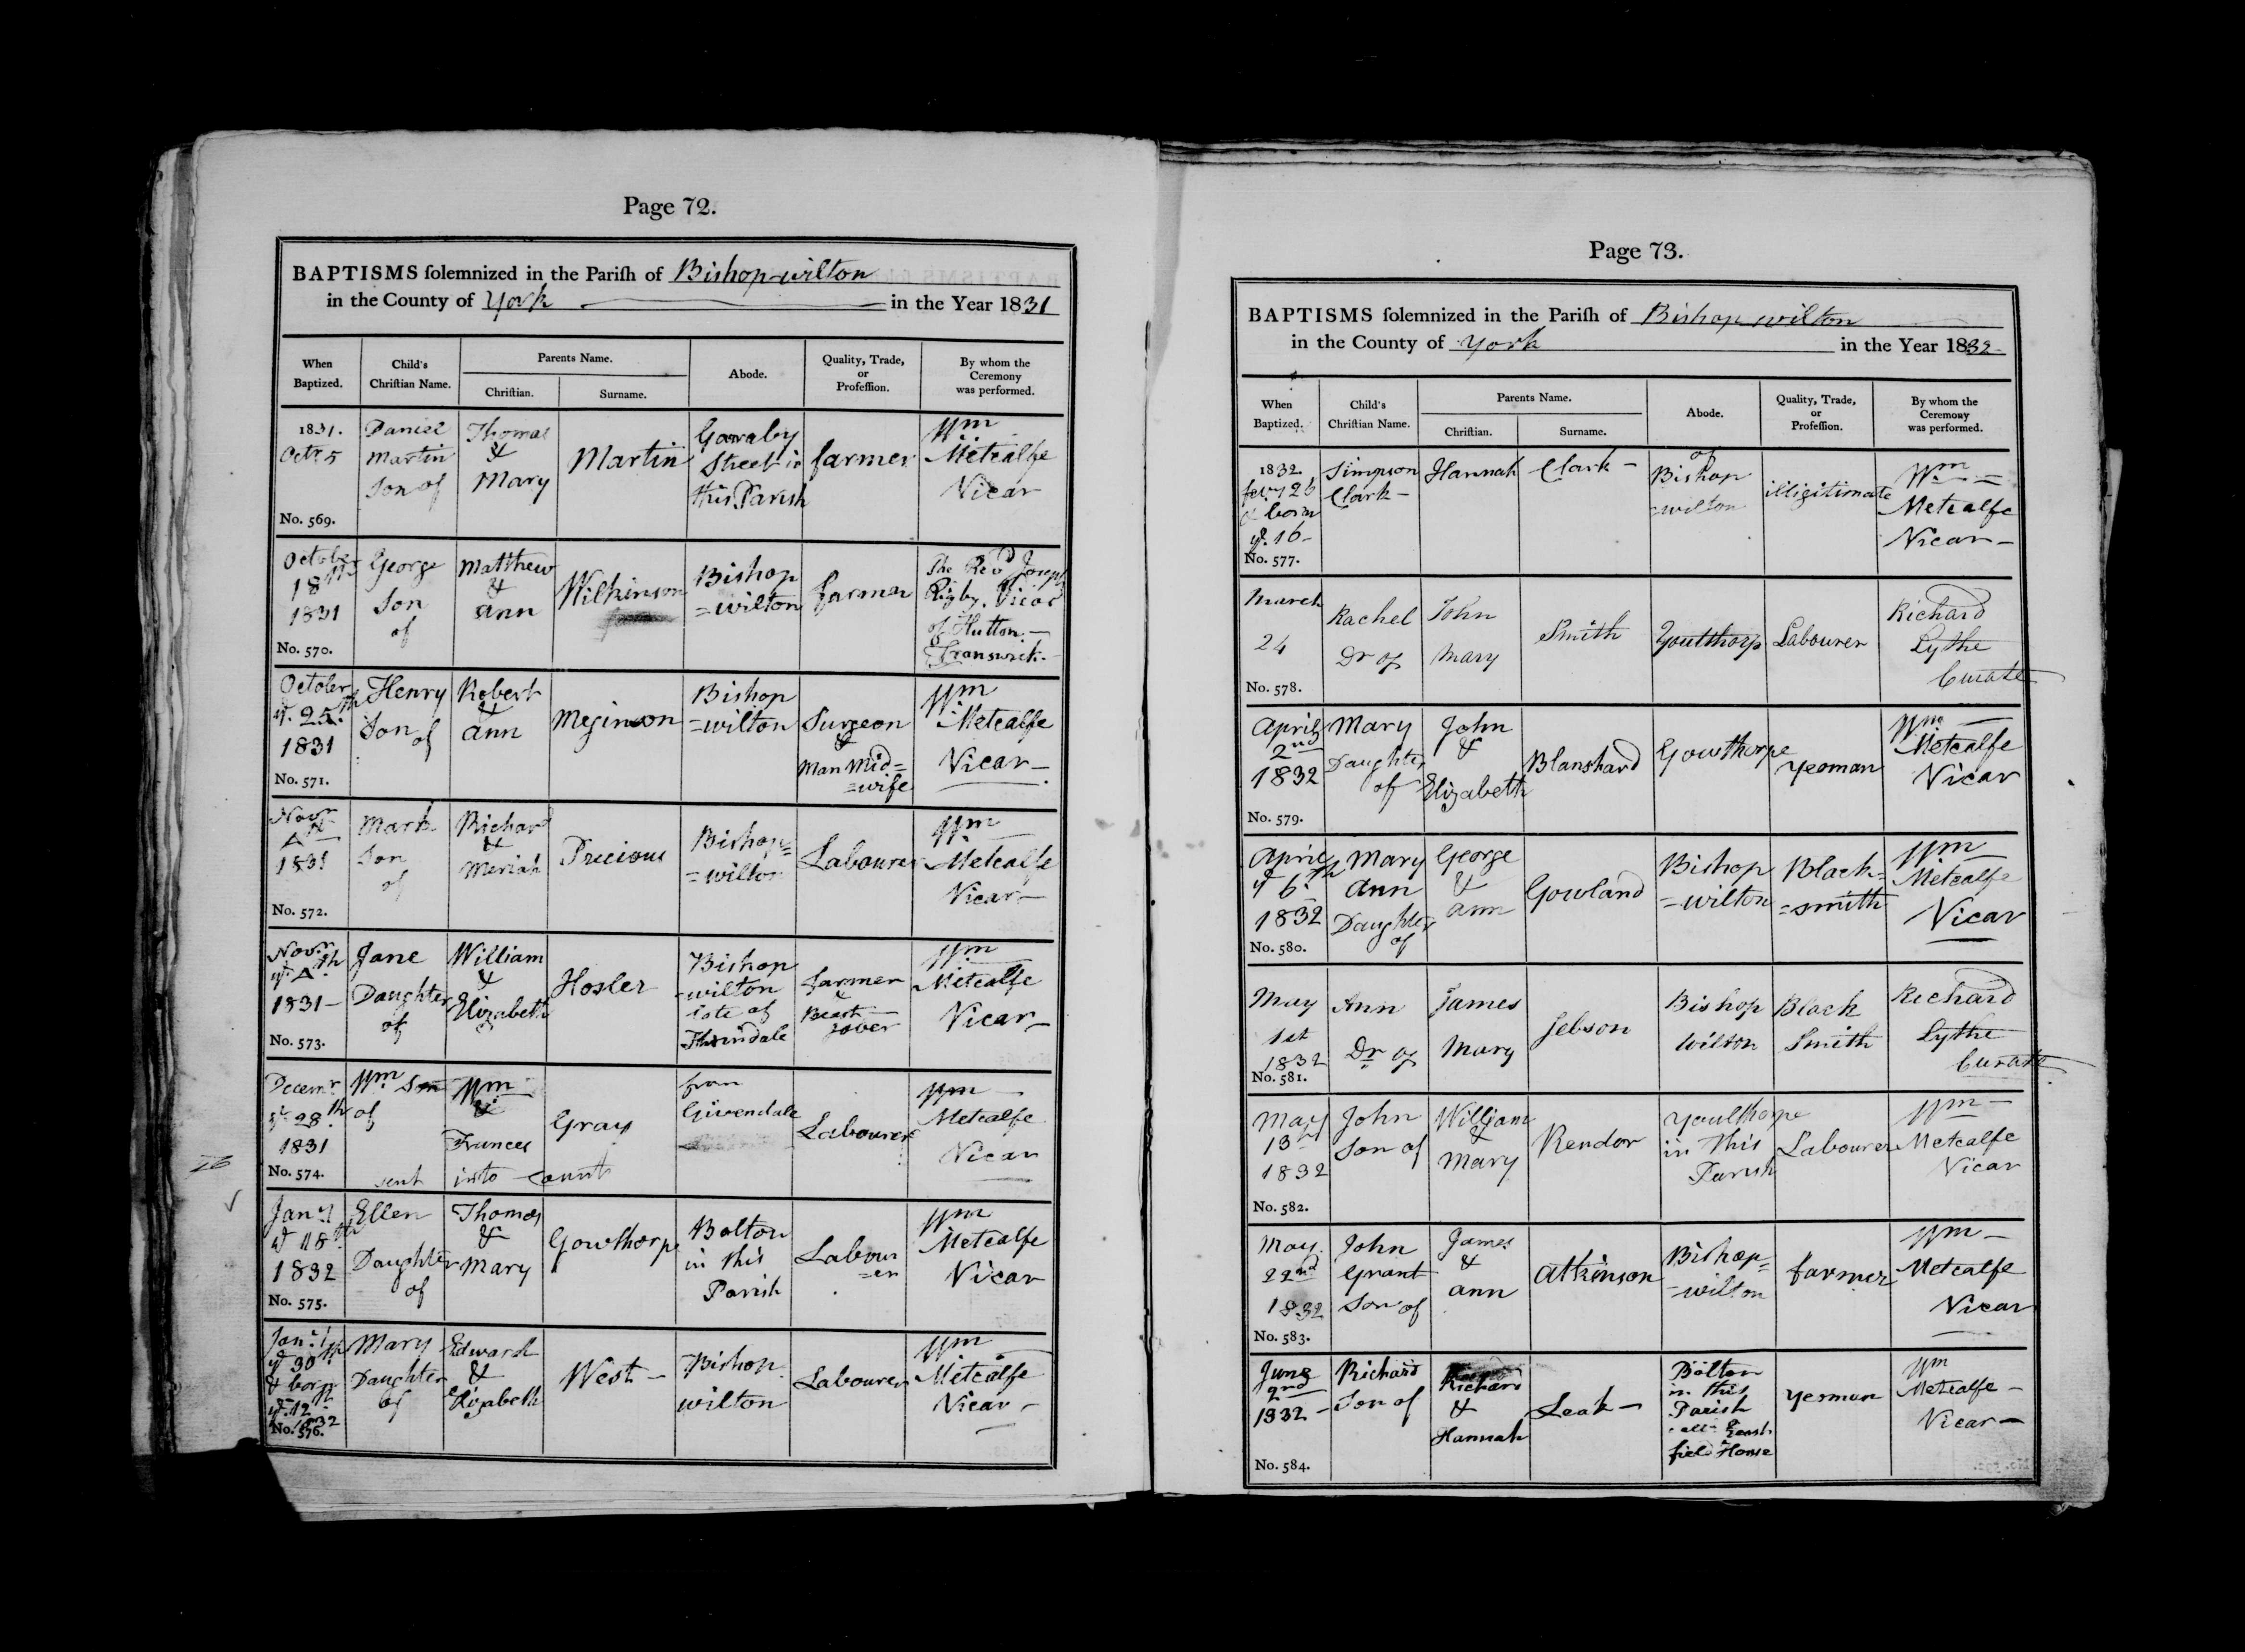 Page 72.
BAPTISMS ſolemnized in the Pariſh of Bishop-wilton
in the County of York in the Year 1831
When Baptized. Child's Chriſtian Name. Parents Name. Chriſtian. Surname. Abode. Quality, Trade, or Profeſſion. By whom the Ceremony was performed.
1831. Octr 5 Daniel Martin Son of Thomas & Mary Martin Street in this Parish farmer Wm Metcalfe Vicar
No. 569.
October 18th 1831 George Son of Matthew & ann Wilkinson Bishop =wilton farmer The Revd Joseph Rigby, Vicar of Hutton Cranswick.
No. 570.
October yt. 25th 1831 Henry Son of Robert & ann Meginson Bishop =wilton Surgeon & Man Mid= =wife Wm Metcalfe Vicar
No. 571.
Novr 1831 Mark Son of Richard & Meriah Precious Bishop= =wilton Labourer Wm Metcalfe Vicar
No. 572.
Novr 1831 Jane Daughter of William & Elizabeth Hosler Bishop -wilton late of farmer & Beast Jober Wm Metcalfe Vicar
No. 573.
Decemr yt 28th 1831 Wm Son of Wm & Frances Gray from Givendale Labourer Wm Metcalfe Vicar
No. 574. sent into Count
Jany yt 18th 1832 Ellen Daughter of Thomas & Mary Gowthorpe Bolton in this Parish Labour =er Wm Metcalfe Vicar
No. 575.
Jany yt 30th & born yt 12th 1832 Mary Daughter of Edward & Elizabeth West Bishop wilton Labourer Wm Metcalfe Vicar
No. 576.
Page 73.
BAPTISMS ſolemnized in the Pariſh of Bishop wilton
in the County of York in the Year 1832
When Baptized. Child's Chriſtian Name. Parents Name. Chriſtian. Surname. Abode. Quality, Trade, or Profeſſion. By whom the Ceremony was performed.
1832 feby 26 & born yt. 16 Simpson Clark Hannah Clark of Bishop =wilton illigitimate Wm Metcalfe Vicar
No. 577.
March 24 Rachel Dr of John Mary Smith Youlthorp Labourer Richard Lythe Curate
No. 578.
April 2nd 1832 Mary Daughter of John & Elizabeth Blanshard Gowthorpe yeoman Wm Metcalfe Vicar
No. 579.
April yt 6th 1832 Mary Ann Daughter of George & ann Gowland Bishop =wilton Black= =smith Wm Metcalfe Vicar
No. 580.
May 1st 1832 Ann Dr of James Mary Jebson Bishop Wilton Black Smith Richard Lythe Curate
No. 581.
May 13th 1832 John Son of William & Mary Rendor Youlthorpe in this Parish Labourer Wm Metcalfe Vicar
No. 582.
May 22nd 1832 John Grant Son of James & ann Atkinson Bishop= =wilton farmer Wm Metcalfe Vicar
No. 583.
June 2nd 1832 Richard Son of Richard & Hannah Leak Bolton in this Parish East field House Yeoman Wm Metcalfe Vicar
No. 584.